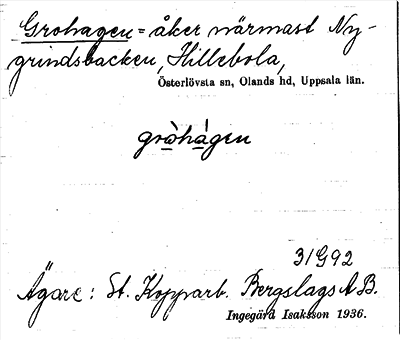 Grohagen = åker närmast Ny-
grindsbacken, Hillebola,
Österlövsta sn, Olands hd, Uppsala län.
gròhágen
31G92
Ägare: St. Kopparb. Bergslags A.B.
Ingegärd Isaksson 1936.